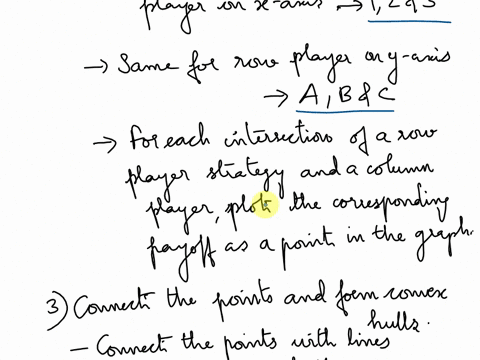 player on x-axis → 1, 2 & 3
→ Same for row player on y-axis
→ A, B & C
→ For each intersection of a row
player strategy and a column
player, plot the corresponding
payoff as a point in the graph.
3) Connect the points and form convex
hulls.
- Connect the points with lines